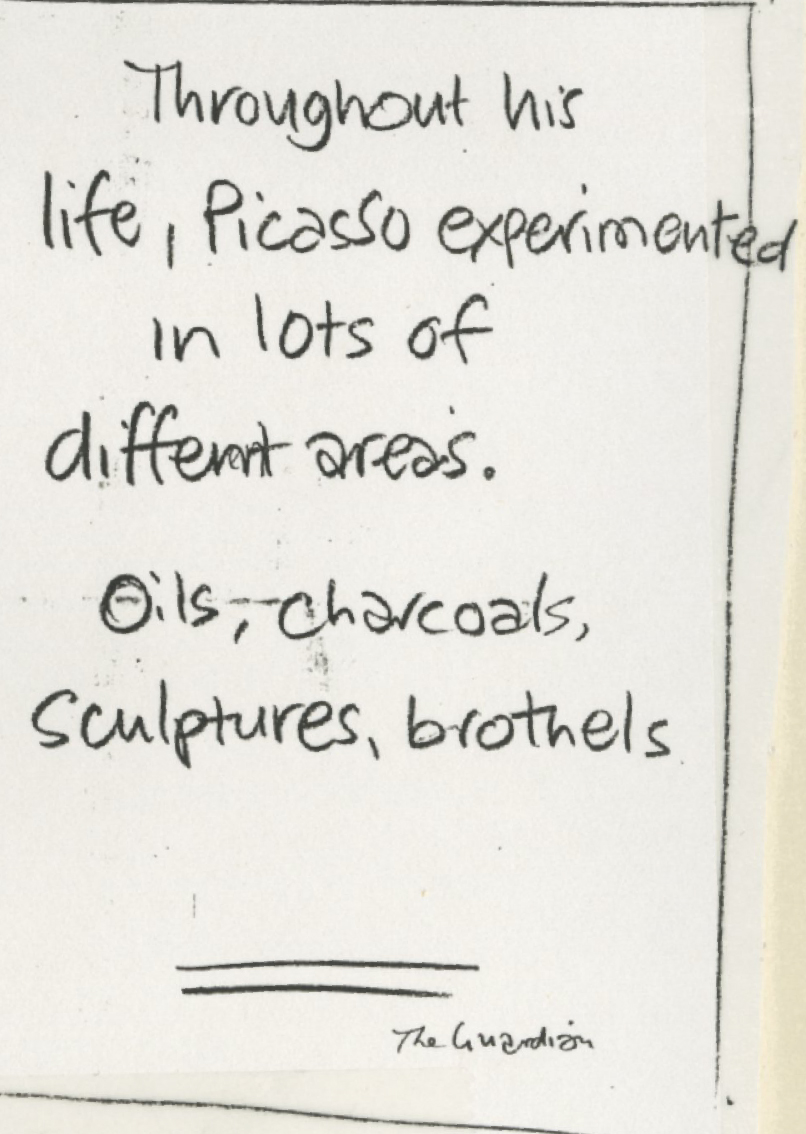 Throughout his
life, Picasso experimented
in lots of
different areas.
Oils, charcoals,
sculptures, brothels
The Guardian